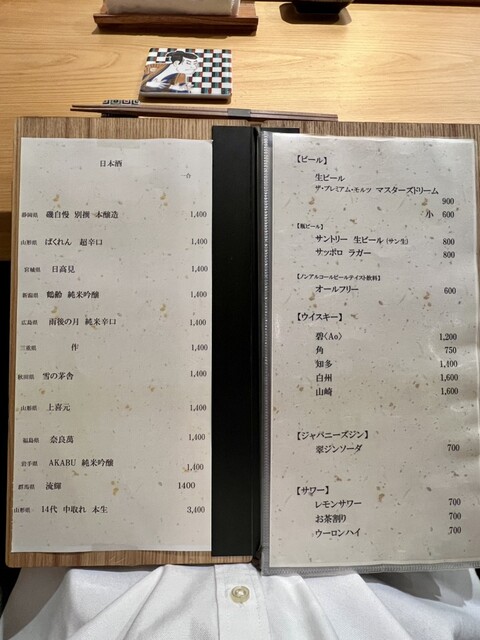 日本酒
一合
静岡県 磯自慢 別撰 本醸造 1,400
山形県 ばくれん 超辛口 1,400
宮城県 日高見 1,400
新潟県 鶴齢 純米吟醸 1,400
広島県 雨後の月 純米辛口 1,400
三重県 作 1,400
秋田県 雪の茅舎 1,400
山形県 上喜元 1,400
福島県 奈良萬 1,400
岩手県 AKABU 純米吟醸 1,400
群馬県 流輝 1400
山形県 14代 中取れ 本生 3,400
【ビール】
生ビール
ザ・プレミアム・モルツ マスターズドリーム
900
小 600
【瓶ビール】
サントリー 生ビール (サン生) 800
サッポロ ラガー 800
【ノンアルコールビールテイスト飲料】
オールフリー 600
【ウイスキー】
碧〈Ao〉 1,200
角 750
知多 1,400
白州 1,600
山崎 1,600
【ジャパニーズジン】
翠ジンソーダ 700
【サワー】
レモンサワー 700
お茶割り 700
ウーロンハイ 700